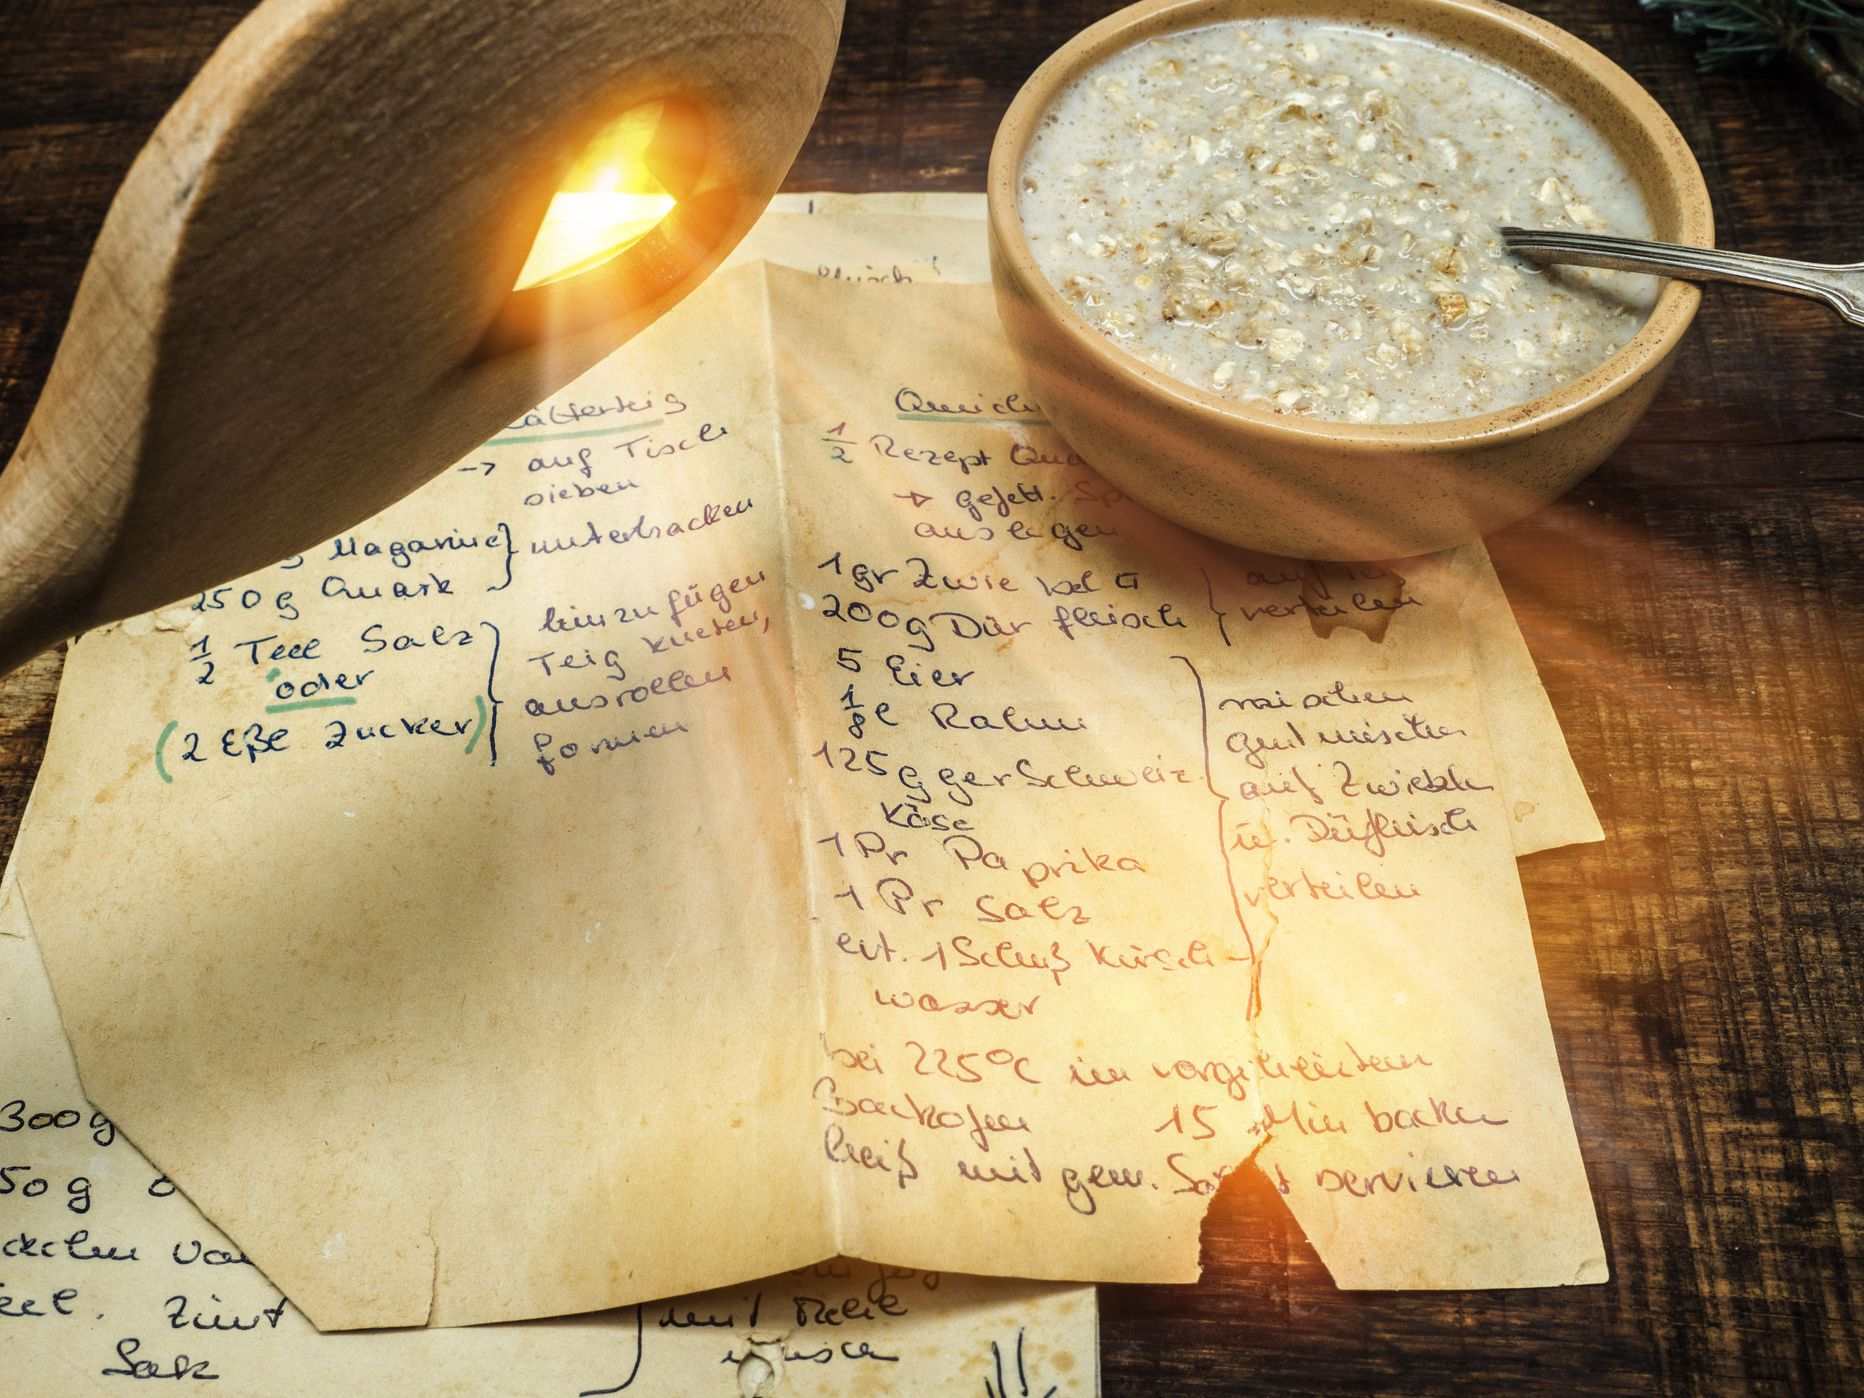 auf Tisch
sieben
Magarine
unterhacken
250g Quark
1/2 Teel Salz
oder
(2 Eßl Zucker)
hinzufügen
Teig kneten,
ausrollen
formen
1/2 Rezept
→ gefett.
auslegen
1gr Zwiebel
200g Dürfleisch
verteilen
5 Eier
1/8 l Rahm
125g ger Schweiz.
Käse
1 Pr Paprika
1 Pr Salz
evt. 1 Schuß Kirsch-
wasser
mischen
gut mischen
auf Zwiebeln
u. Dürfleisch
verteilen
bei 225°C im vorgeheizten
Backofen 15 Min backen
heiß mit gem. servieren
300g
50g
Zimt
Salz
mit Mehl